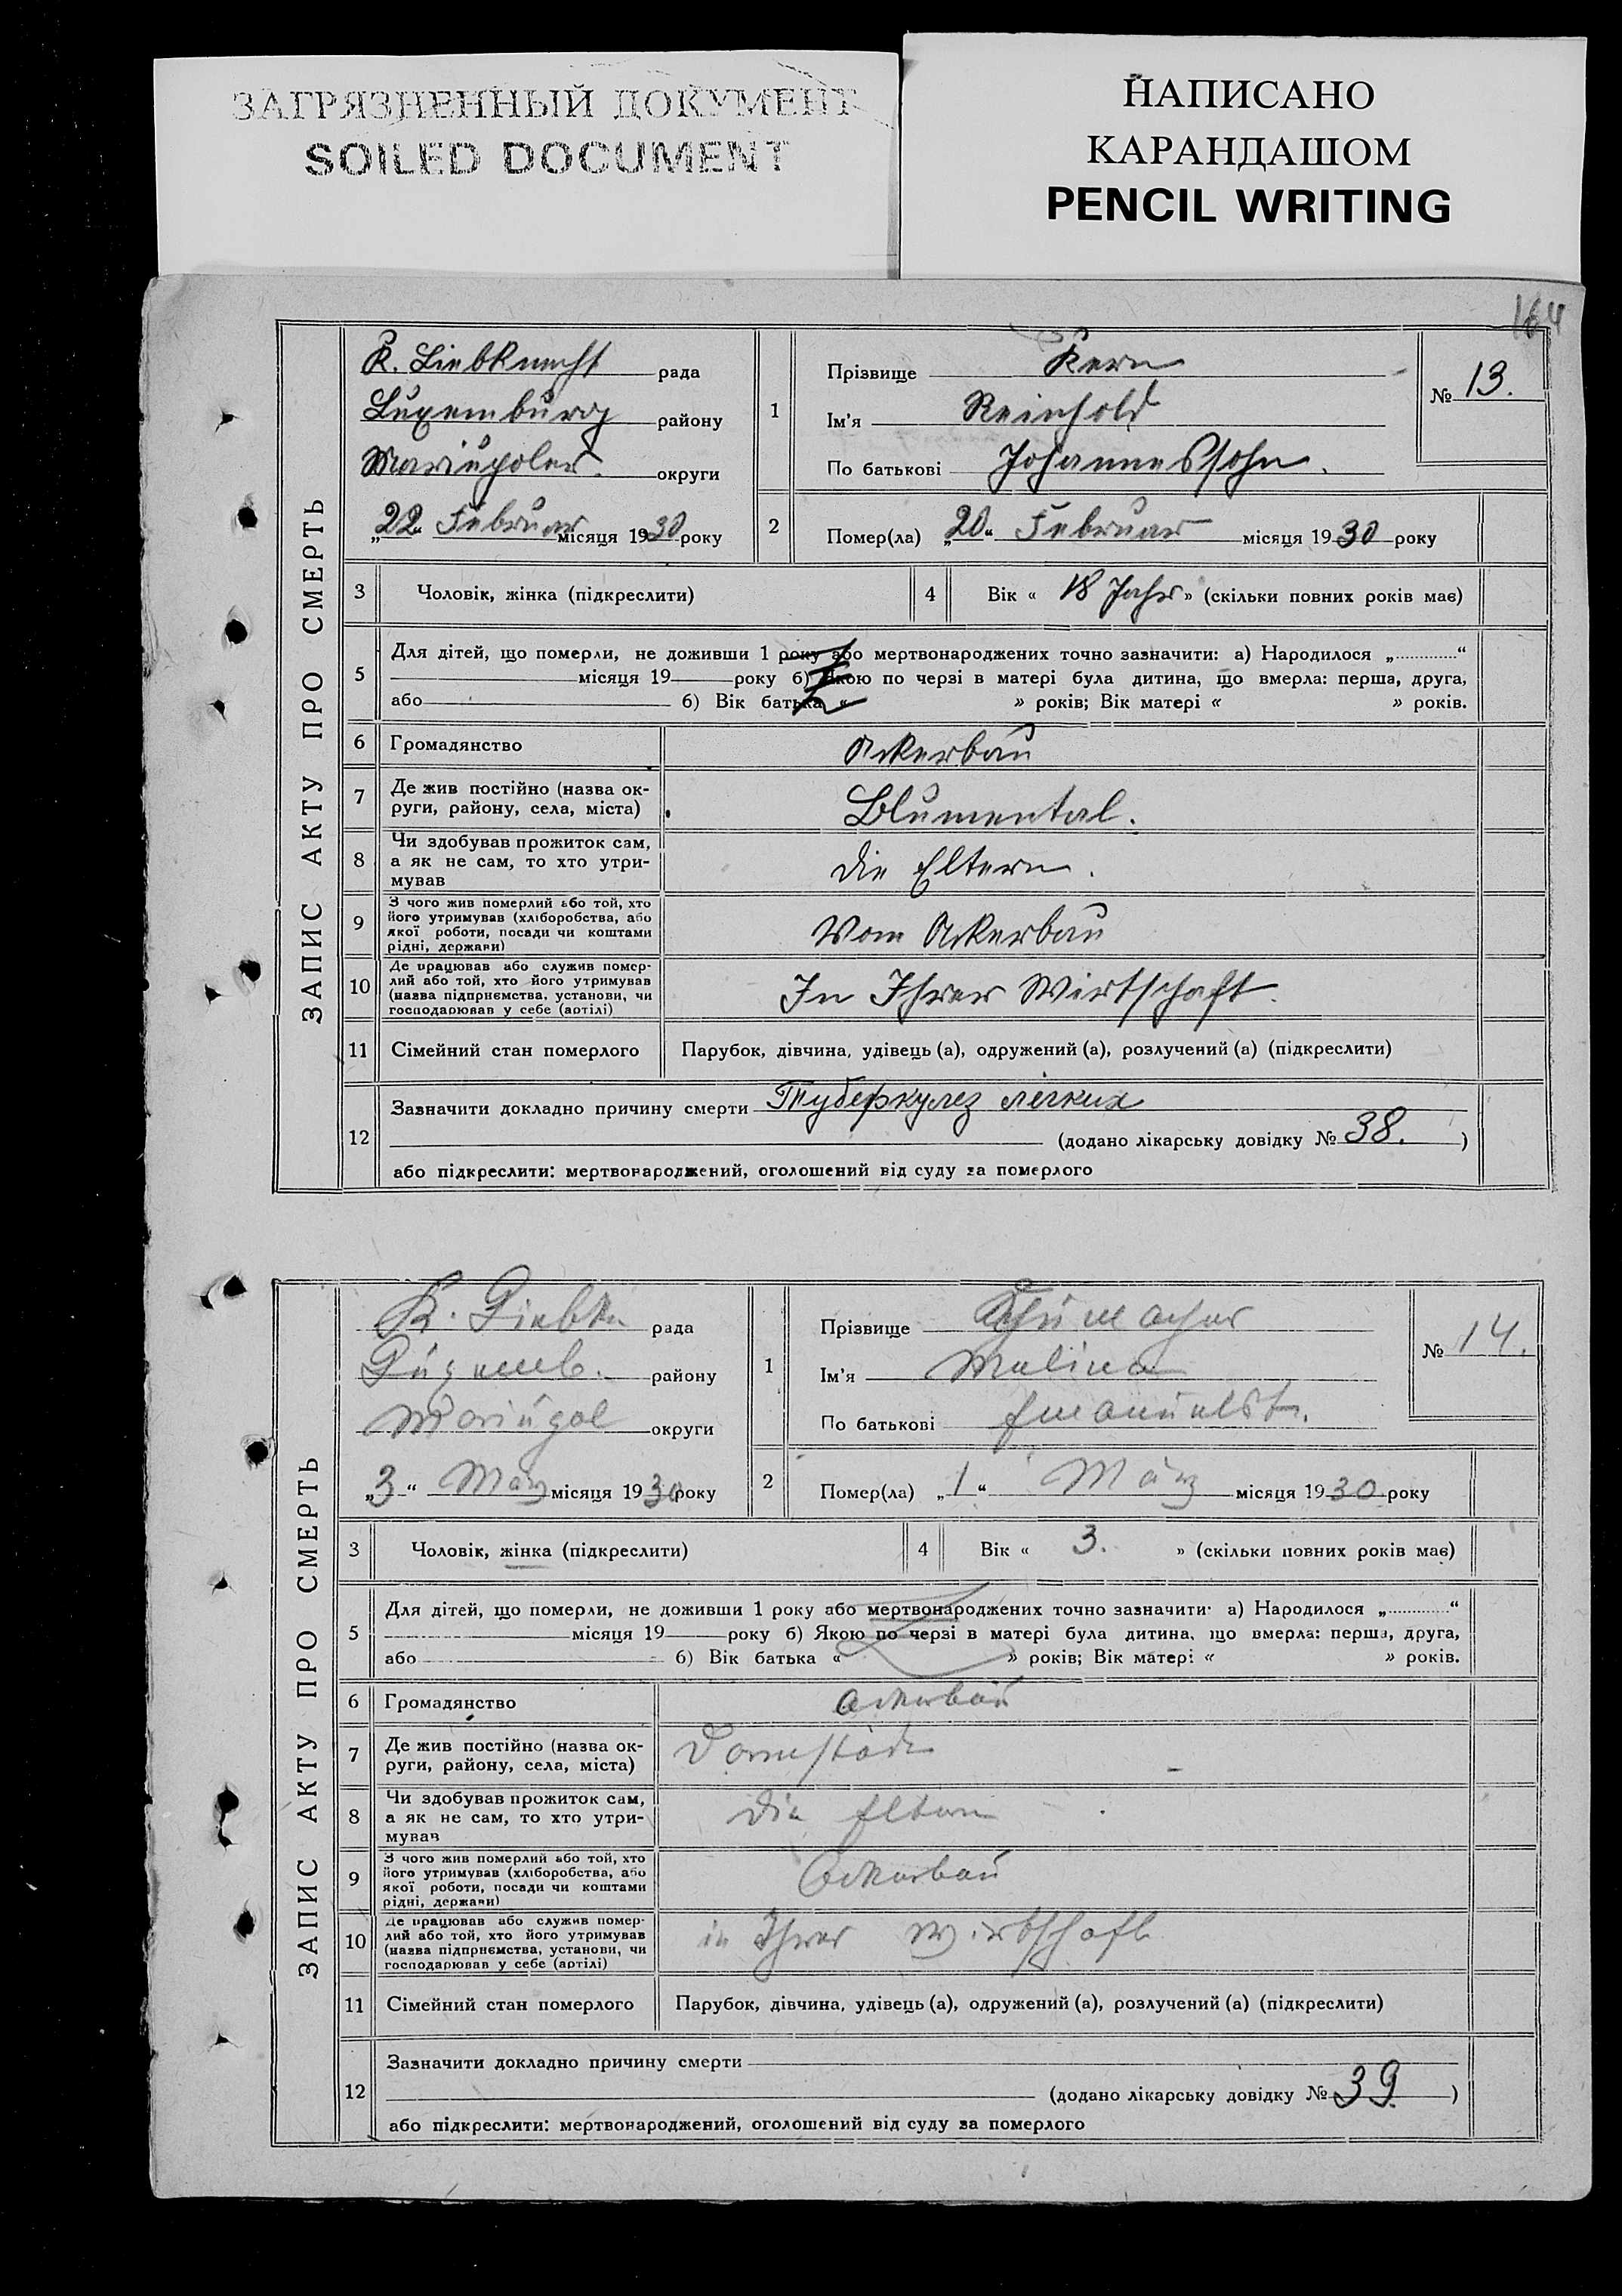 ЗАГРЯЗНЕННЫЙ ДОКУМЕНТ
SOILED DOCUMENT
НАПИСАНО
КАРАНДАШОМ
PENCIL WRITING
164
ЗАПИС АКТУ ПРО СМЕРТЬ
K. Liebknecht рада
Luxemburg районy
Mariupoler округи
„22“ Februar місяця 1930 року
1
Прізвище Kern
Ім'я Reinhold
По батькові Johannessohn.
№ 13.
2 Помер(ла) „20“ Februar місяця 1930 року
3 Чоловік, жінка (підкреслити)
4 Вік « 18 Jahr » (скільки повних років має)
5 Для дітей, що померли, не доживши 1 року або мертвонароджених точно зазначити: а) Народилося „ “
місяця 19 року б) Якою по черзі в матері була дитина, що вмерла: перша, друга,
або б) Вік батька « » років; Вік матері « » років.
6 Громадянство Ackerbau
7 Де жив постійно (назва ок-
руги, району, села, міста) Blumental.
8 Чи здобував прожиток сам,
а як не сам, то хто утри-
мував die Eltern.
9 З чого жив померлий або той, хто
його утримував (хліборобства, або
якої роботи, посади чи коштами
рідні, держави) Vom Ackerbau
10 Де працював або служив помер-
лий або той, хто його утримував
(назва підприємства, установи, чи
господарював у себе (артілі) In Ihrer Wirtschaft.
11 Сімейний стан померлого Парубок, дівчина, удівець (а), одружений (а), розлучений (а) (підкреслити)
12 Зазначити докладно причину смерти Туберкулез легких
(додано лікарську довідку № 38. )
або підкреслити: мертвонароджений, оголошений від суду за померлого
ЗАПИС АКТУ ПРО СМЕРТЬ
K. Liebkn. рада
Luxemb. району
Mariupol округи
„3“ März місяця 1930 року
1
Прізвище Schumacher
Ім'я Malina
По батькові Emanuelst.
№ 14.
2 Помер(ла) „1“ März місяця 1930 року
3 Чоловік, жінка (підкреслити)
4 Вік « 3. » (скільки повних років має)
5 Для дітей, що померли, не доживши 1 року або мертвонароджених точно зазначити: а) Народилося „ “
місяця 19 року б) Якою по черзі в матері була дитина, що вмерла: перша, друга,
або б) Вік батька « » років; Вік матері « » років.
6 Громадянство Ackerbau
7 Де жив постійно (назва ок-
руги, району, села, міста)
8 Чи здобував прожиток сам,
а як не сам, то хто утри-
мував die Eltern
9 З чого жив померлий або той, хто
його утримував (хліборобства, або
якої роботи, посади чи коштами
рідні, держави) Ackerbau
10 Де працював або служив помер-
лий або той, хто його утримував
(назва підприємства, установи, чи
господарював у себе (артілі) in Ihrer Wirtschaft
11 Сімейний стан померлого Парубок, дівчина, удівець (а), одружений (а), розлучений (а) (підкреслити)
12 Зазначити докладно причину смерти
(додано лікарську довідку № 39. )
або підкреслити: мертвонароджений, оголошений від суду за померлого